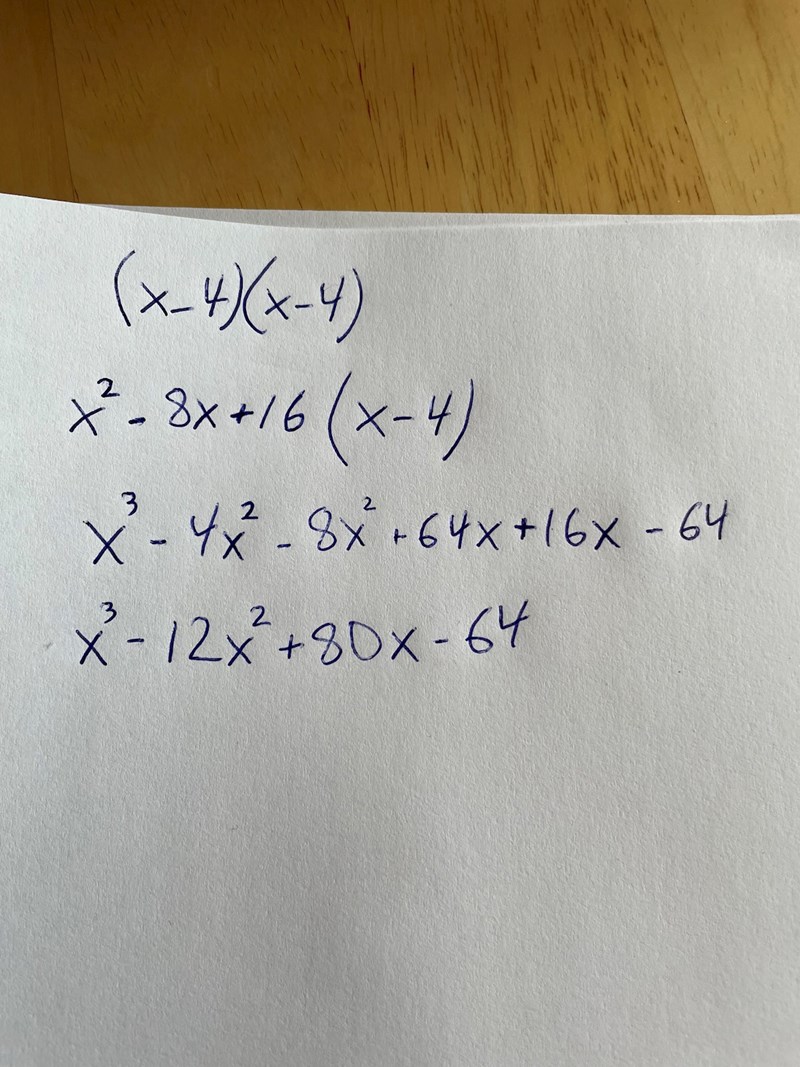 (x-4)(x-4)
x² - 8x+16 (x-4)
x³ - 4x² - 8x² + 64x + 16x - 64
x³ - 12x² + 80x - 64